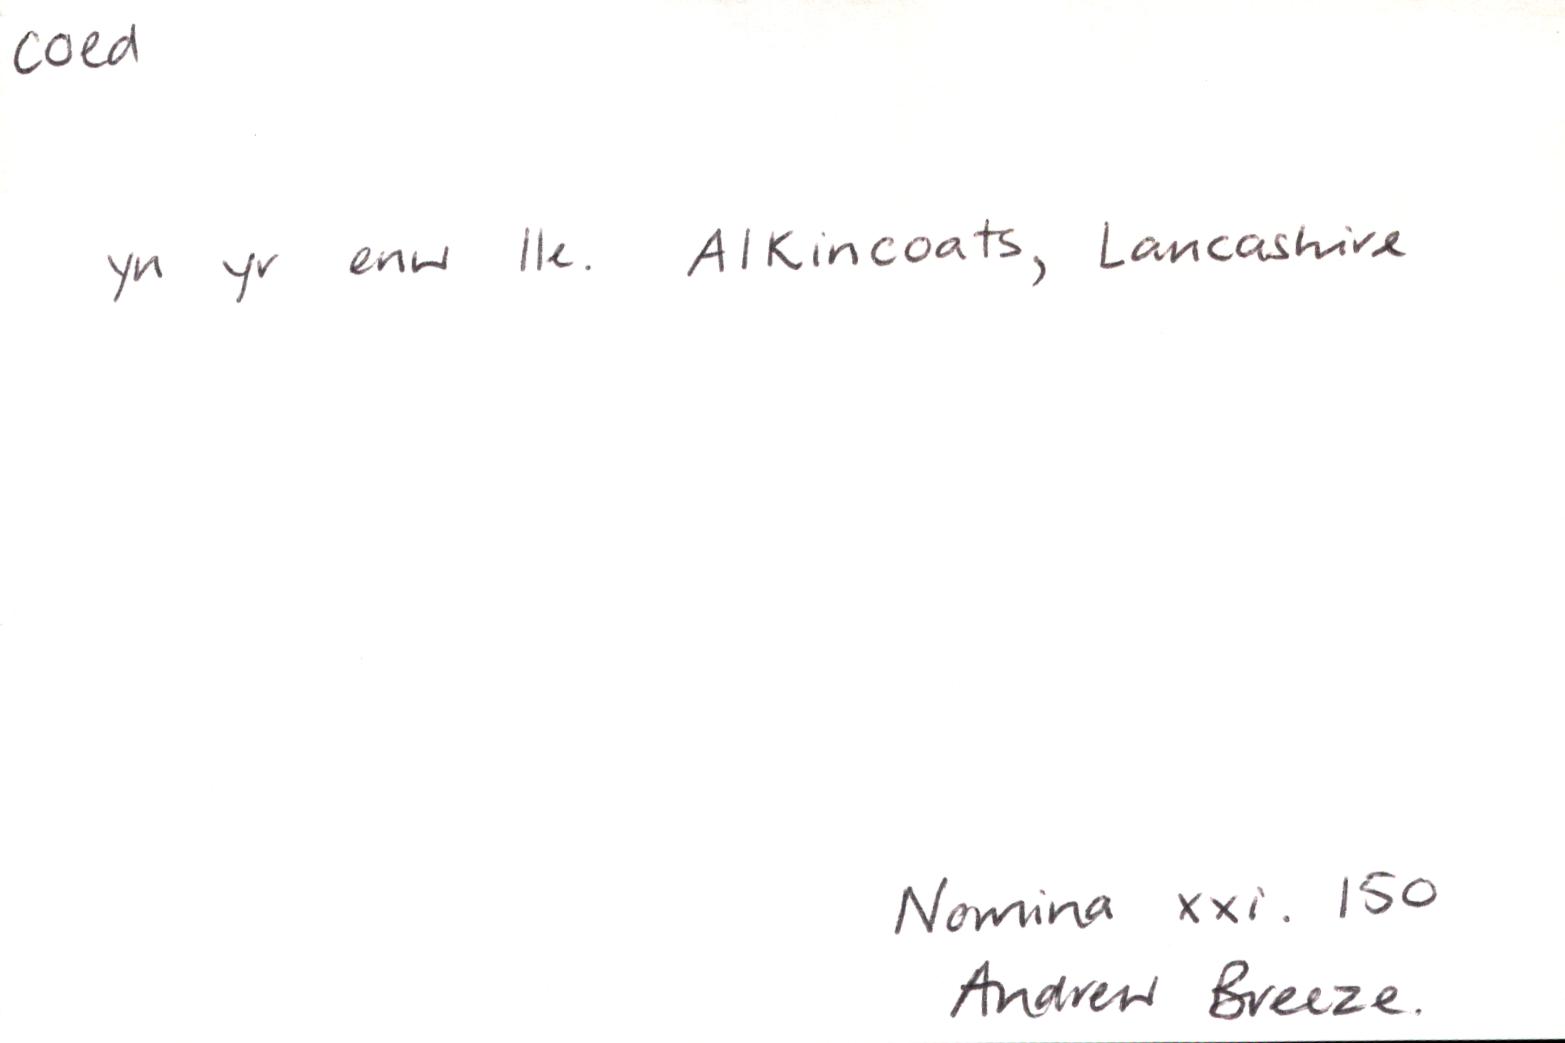 coed
yn yr enw lle. Alkincoats, Lancashire
Nomina xxi. 150
Andrew Breeze.